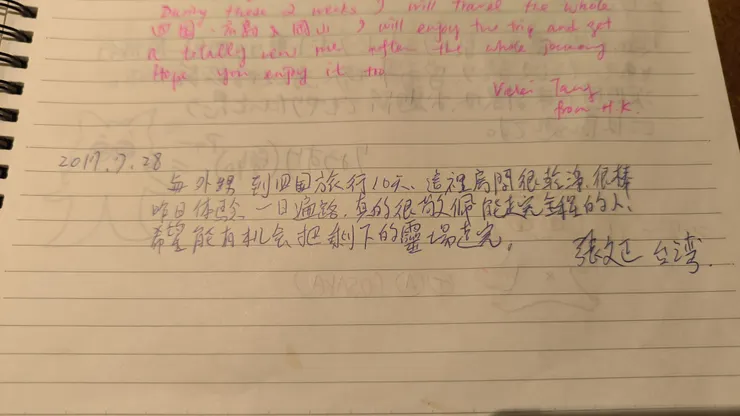 During these 2 weeks I will travel the whole
四国、京都 & 岡山 I will enjoy the trip and get
a totally new me after the whole journey
Hope you enjoy it too
Tang
from H.K.
2017.7.28
到四国旅行10天、這裡房間很乾淨、很棒
昨日体验一日遍路,真的很敬佩能走完全程的人、
希望能有机会把剩下的靈場走完。
張文正 台湾.